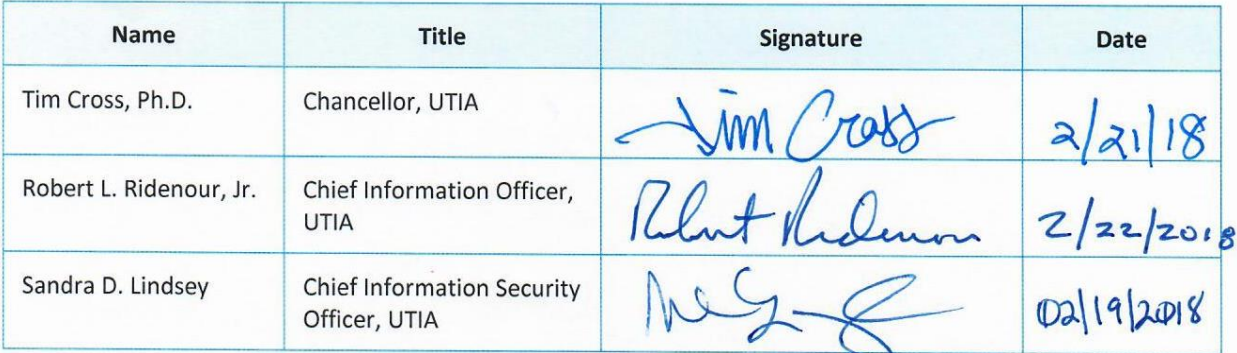 Name Title Signature Date
Tim Cross, Ph.D. Chancellor, UTIA Tim Cross 2/21/18
Robert L. Ridenour, Jr. Chief Information Officer, UTIA Robert Ridenour 2/22/2018
Sandra D. Lindsey Chief Information Security Officer, UTIA 02/19/2018